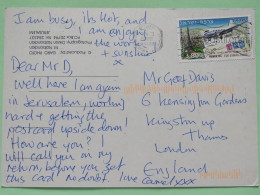 I am busy, its hot, and
I am enjoying
the work
+ sunshine!
Dear Mr D,
well here I am again
in Jerusalem, working
hard & getting the
postcard upside down!
How are you? I
will call you on my
return, before you get
this card no doubt. love
Mr Geof Davis
6 Kensington Gardens
Kingston up
Thames
London
England